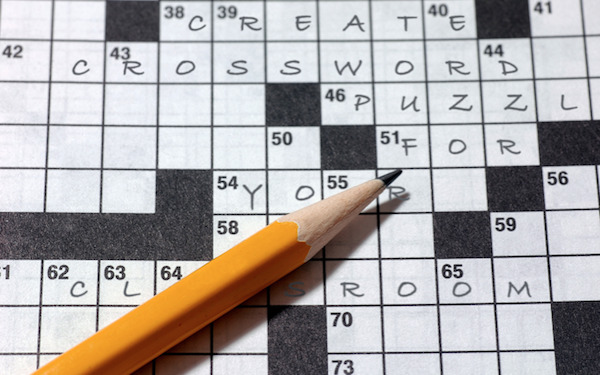 38 C 39 R E A T 40 E 41
42 C 43 R O S S W O R 44 D
46 P U Z Z L
50 51 F O R
54 Y O 55 R 56
58 59
62 C 63 L 64 S R O 65 O M
70
73